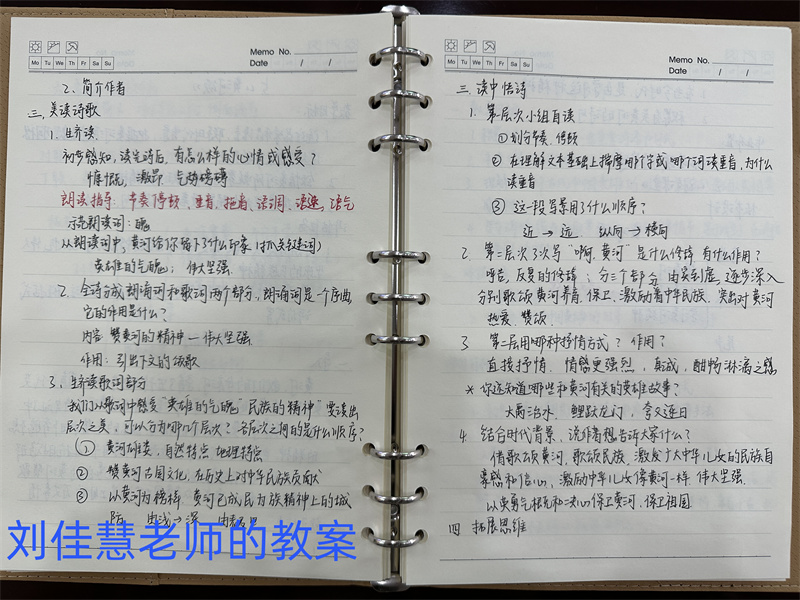 Memo No.
Mo Tu We Th Fr Sa Su
Date / /
2、简介作者
三、美读诗歌
1、生齐读
初步感知,读完诗后,有怎样的心情或感受?
慷慨、激昂、气势磅礴
朗读指导:节奏停顿、重音、拖音、语调、语速、语气
示范朗读词:
从朗诵词中,黄河给你留下了什么印象(抓关键词)
英雄的气魄;伟大坚强
2、全诗分成朗诵词和歌词两个部分,朗诵词是一个序曲
它的作用是什么?
内容:赞黄河的精神—伟大坚强
作用:引出下文的颂歌
3、生齐读歌词部分
我们从歌词中感受"英雄的气魄"民族的精神"要读出
层次之美,可以分为哪几个层次?各层次之间的是什么顺序?
① 黄河雄姿,自然特点 地理特点
② 赞黄河古国文化,在历史上对中华民族贡献
③ 以黄河为榜样,黄河已成民为族精神上的城
防 由浅→深
刘佳慧老师的教案
Memo No.
Mo Tu We Th Fr Sa Su
Date / /
三、读中悟诗
1、第一层次小组自读
①划分节奏、停顿
②在理解文本基础上揣摩哪个字或哪个词读重音,为什么
读重音
③ 这一段写景用了什么顺序?
近→远 纵向→横向
2、第二层次3次写"啊,黄河"是什么修辞,有什么作用?
呼告,反复的修辞;分三个部分 由实到虚,逐步深入
分别歌颂黄河养育、保卫、激励着中华民族,突出对黄河
热爱、赞颂
3、第二层用哪种抒情方式?作用?
直接抒情,情感更强烈,真诚,酣畅淋漓之感
* 你还知道哪些和黄河有关的英雄故事?
大禹治水、鲤跃龙门、夸父逐日
4、结合时代背景,说作者想告诉大家什么?
借歌颂黄河,歌颂民族,激发广大中华儿女的民族自
豪感和信心,激励中华儿女像黄河一样 伟大坚强
以英勇气概和决心保卫黄河,保卫祖国
四、拓展思维